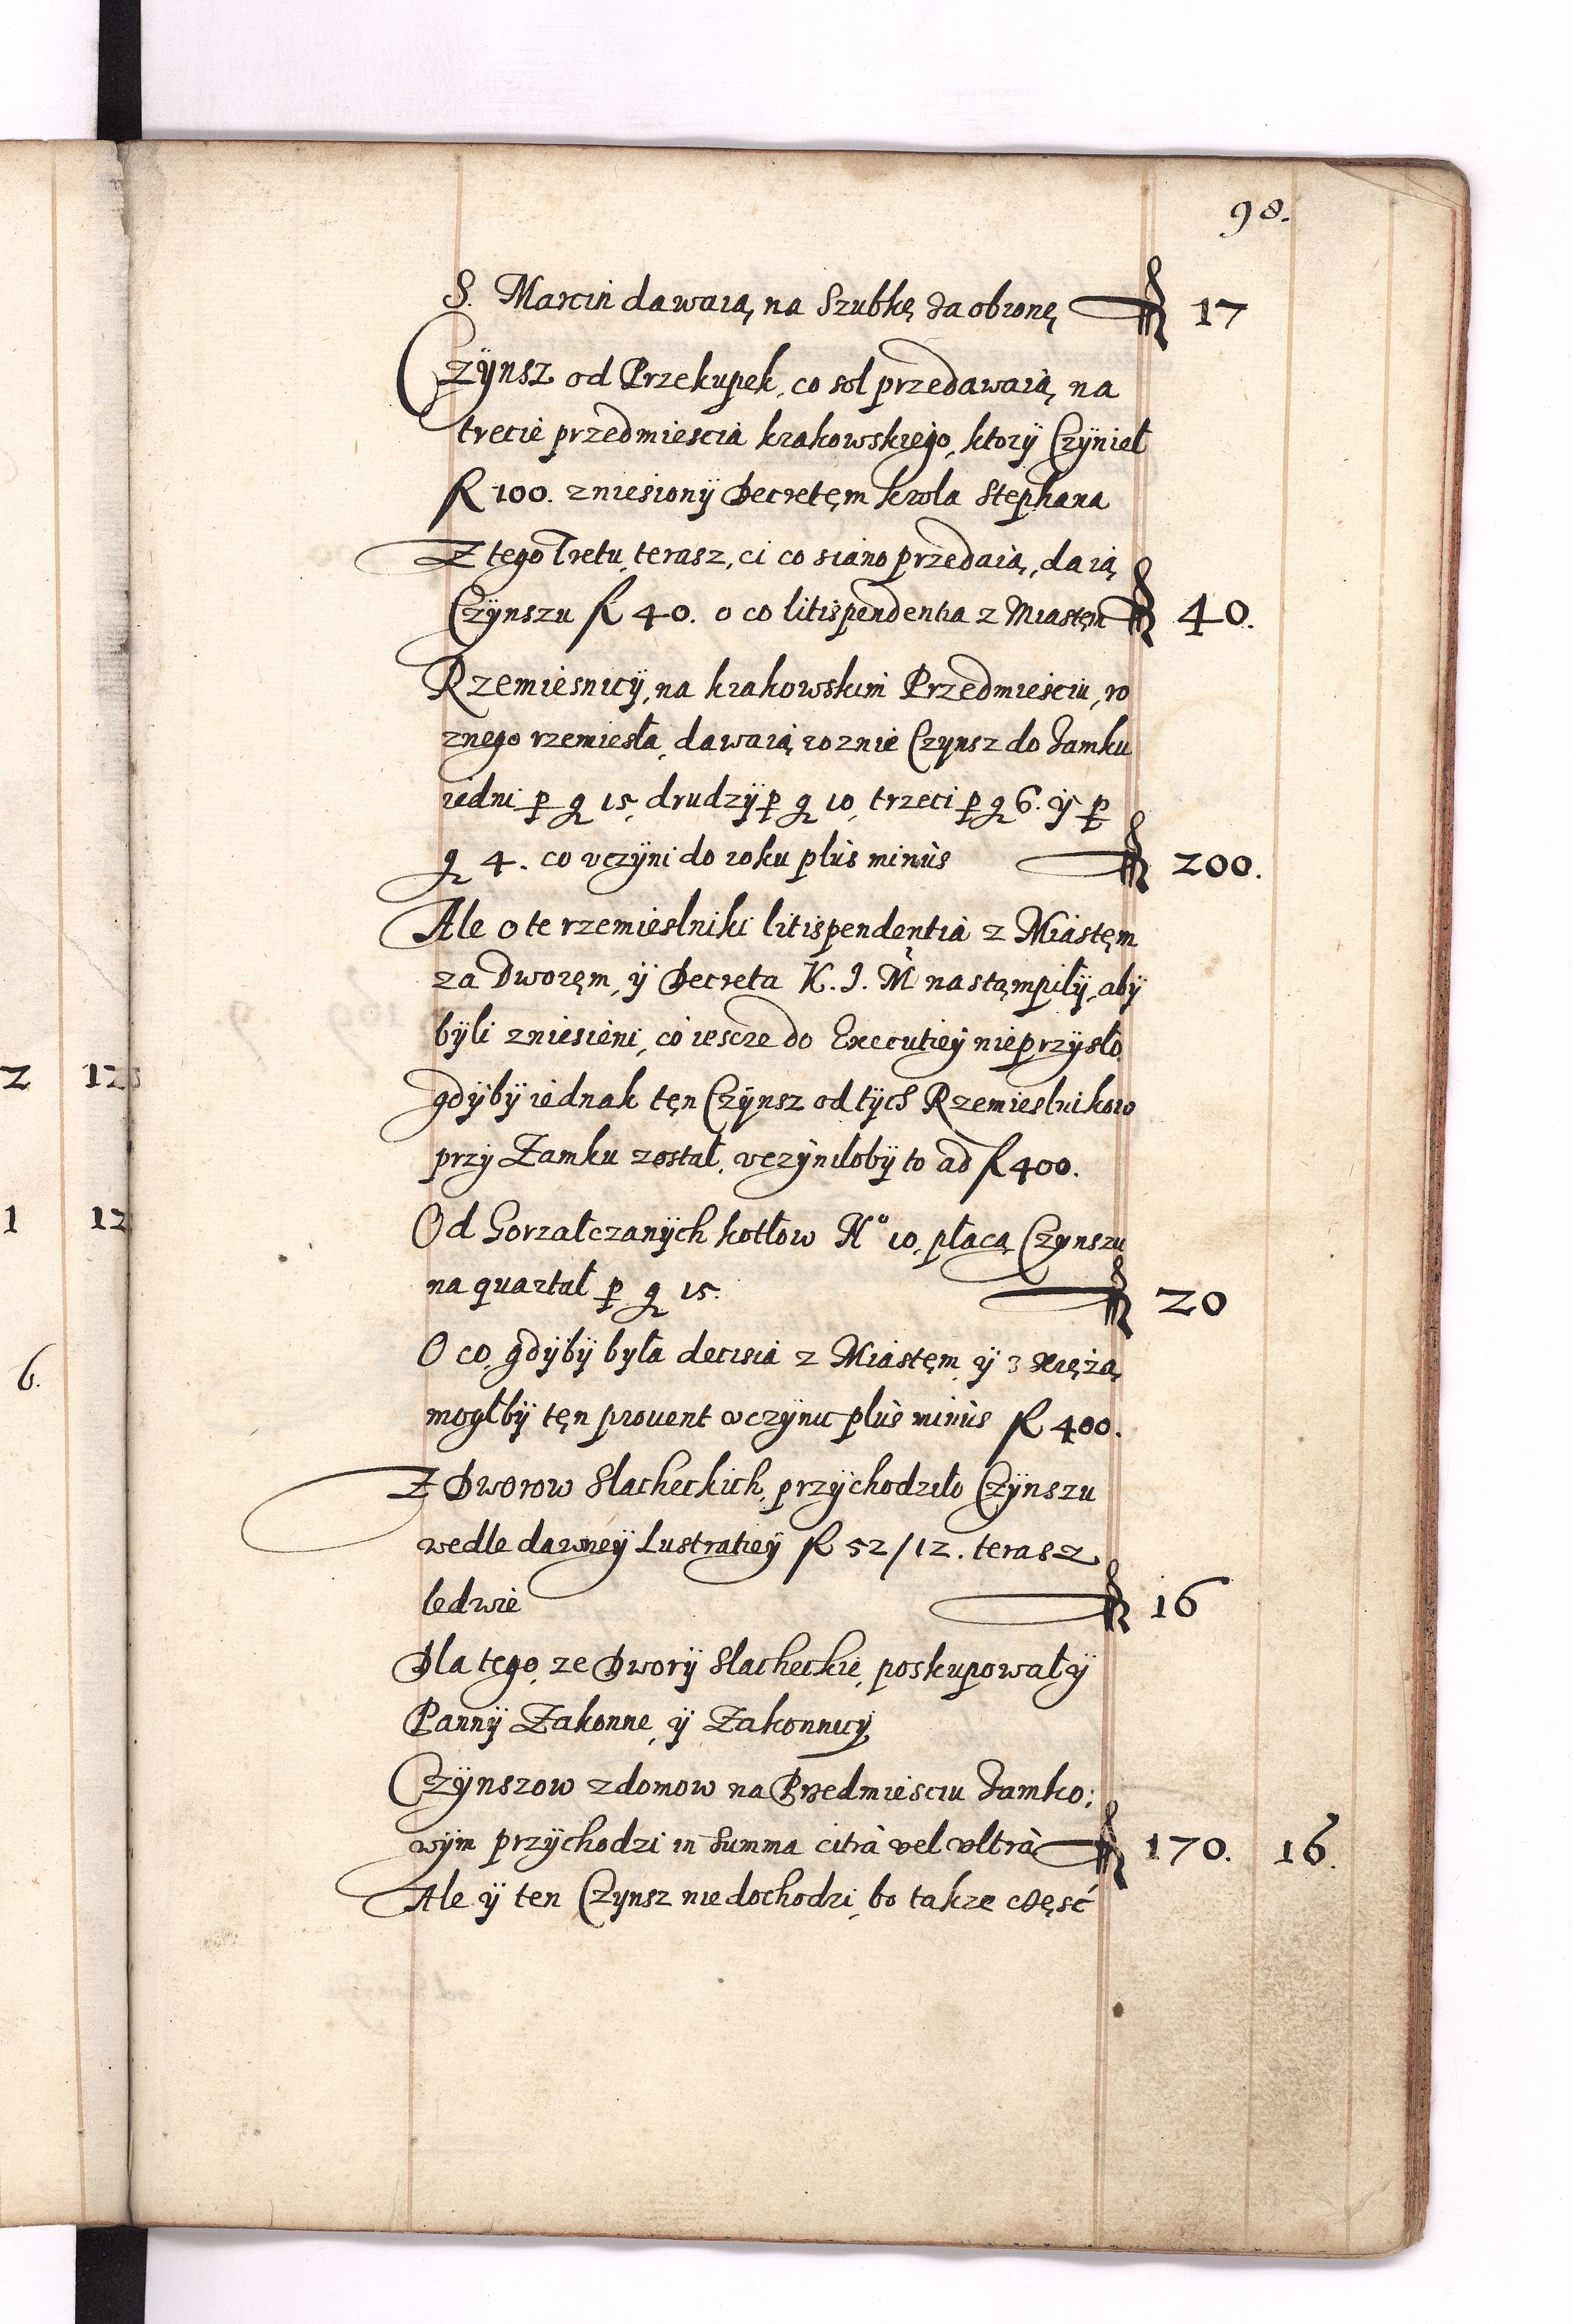 98.
S. Marcin dawaią na Szubkę za obronę fl 17
Czÿnsz od Przekupek, co sol przedawaią, na
trecie przedmiescia krakowskiego, ktorÿ Czÿnieł
fl 100. zniesionÿ Decretęm krola Stephana
Z tego Tretu, terasz, ci co siano przedaią, daią
Czÿnszu fl 40. o co litispendentia z Miastęm fl 40.
Rzemiesnicÿ, na krakowskim Przedmiesciu, ro
znego rzemiesła, dawaią roznie Czynsz do Zamku
iedni p g 15, drudzÿ p g 10, trzeci p g 6. ÿ p
g 4. co vczÿni do roku plus minùs fl 200.
Ale o te rzemieslniki litispendentia z Miastęm
za Dworęm, ÿ Decreta K. J. M nastąmpiłÿ, abÿ
bÿli zniesieni, co iescze do Executieÿ nieprzÿsło
gdÿbÿ iednak tęn Czÿnsz od tÿch Rzemieslnikow
przÿ Zamku został, vczÿniłobÿ to ad fl 400.
Od Gorzałczanÿch kotłow No 10, płacą Czynszu
na quartał p g 15. fl 20
O co, gdÿbÿ była decisia z Miastęm, ÿ z xiężą
mogłbÿ tęn prouent vczÿnic plus minùs fl 400.
Z Dworow Slacheckich, przÿchodziło Czÿnszu
wedle dawneÿ Lustratieÿ fl 52/12. terasz
ledwie fl 16
Dla tego, ze Dworÿ Slacheckie, poskupowałÿ
Pannÿ Zakonne, ÿ Zakonnicÿ
Czÿnszow z domow na Przedmiesciu Zamko:
wÿm przÿchodzi in Summa citrà vel vltrà fl 170. 16.
Ale ÿ ten Czynsz nie dochodzi, bo takze część
2 12
1 12
6.